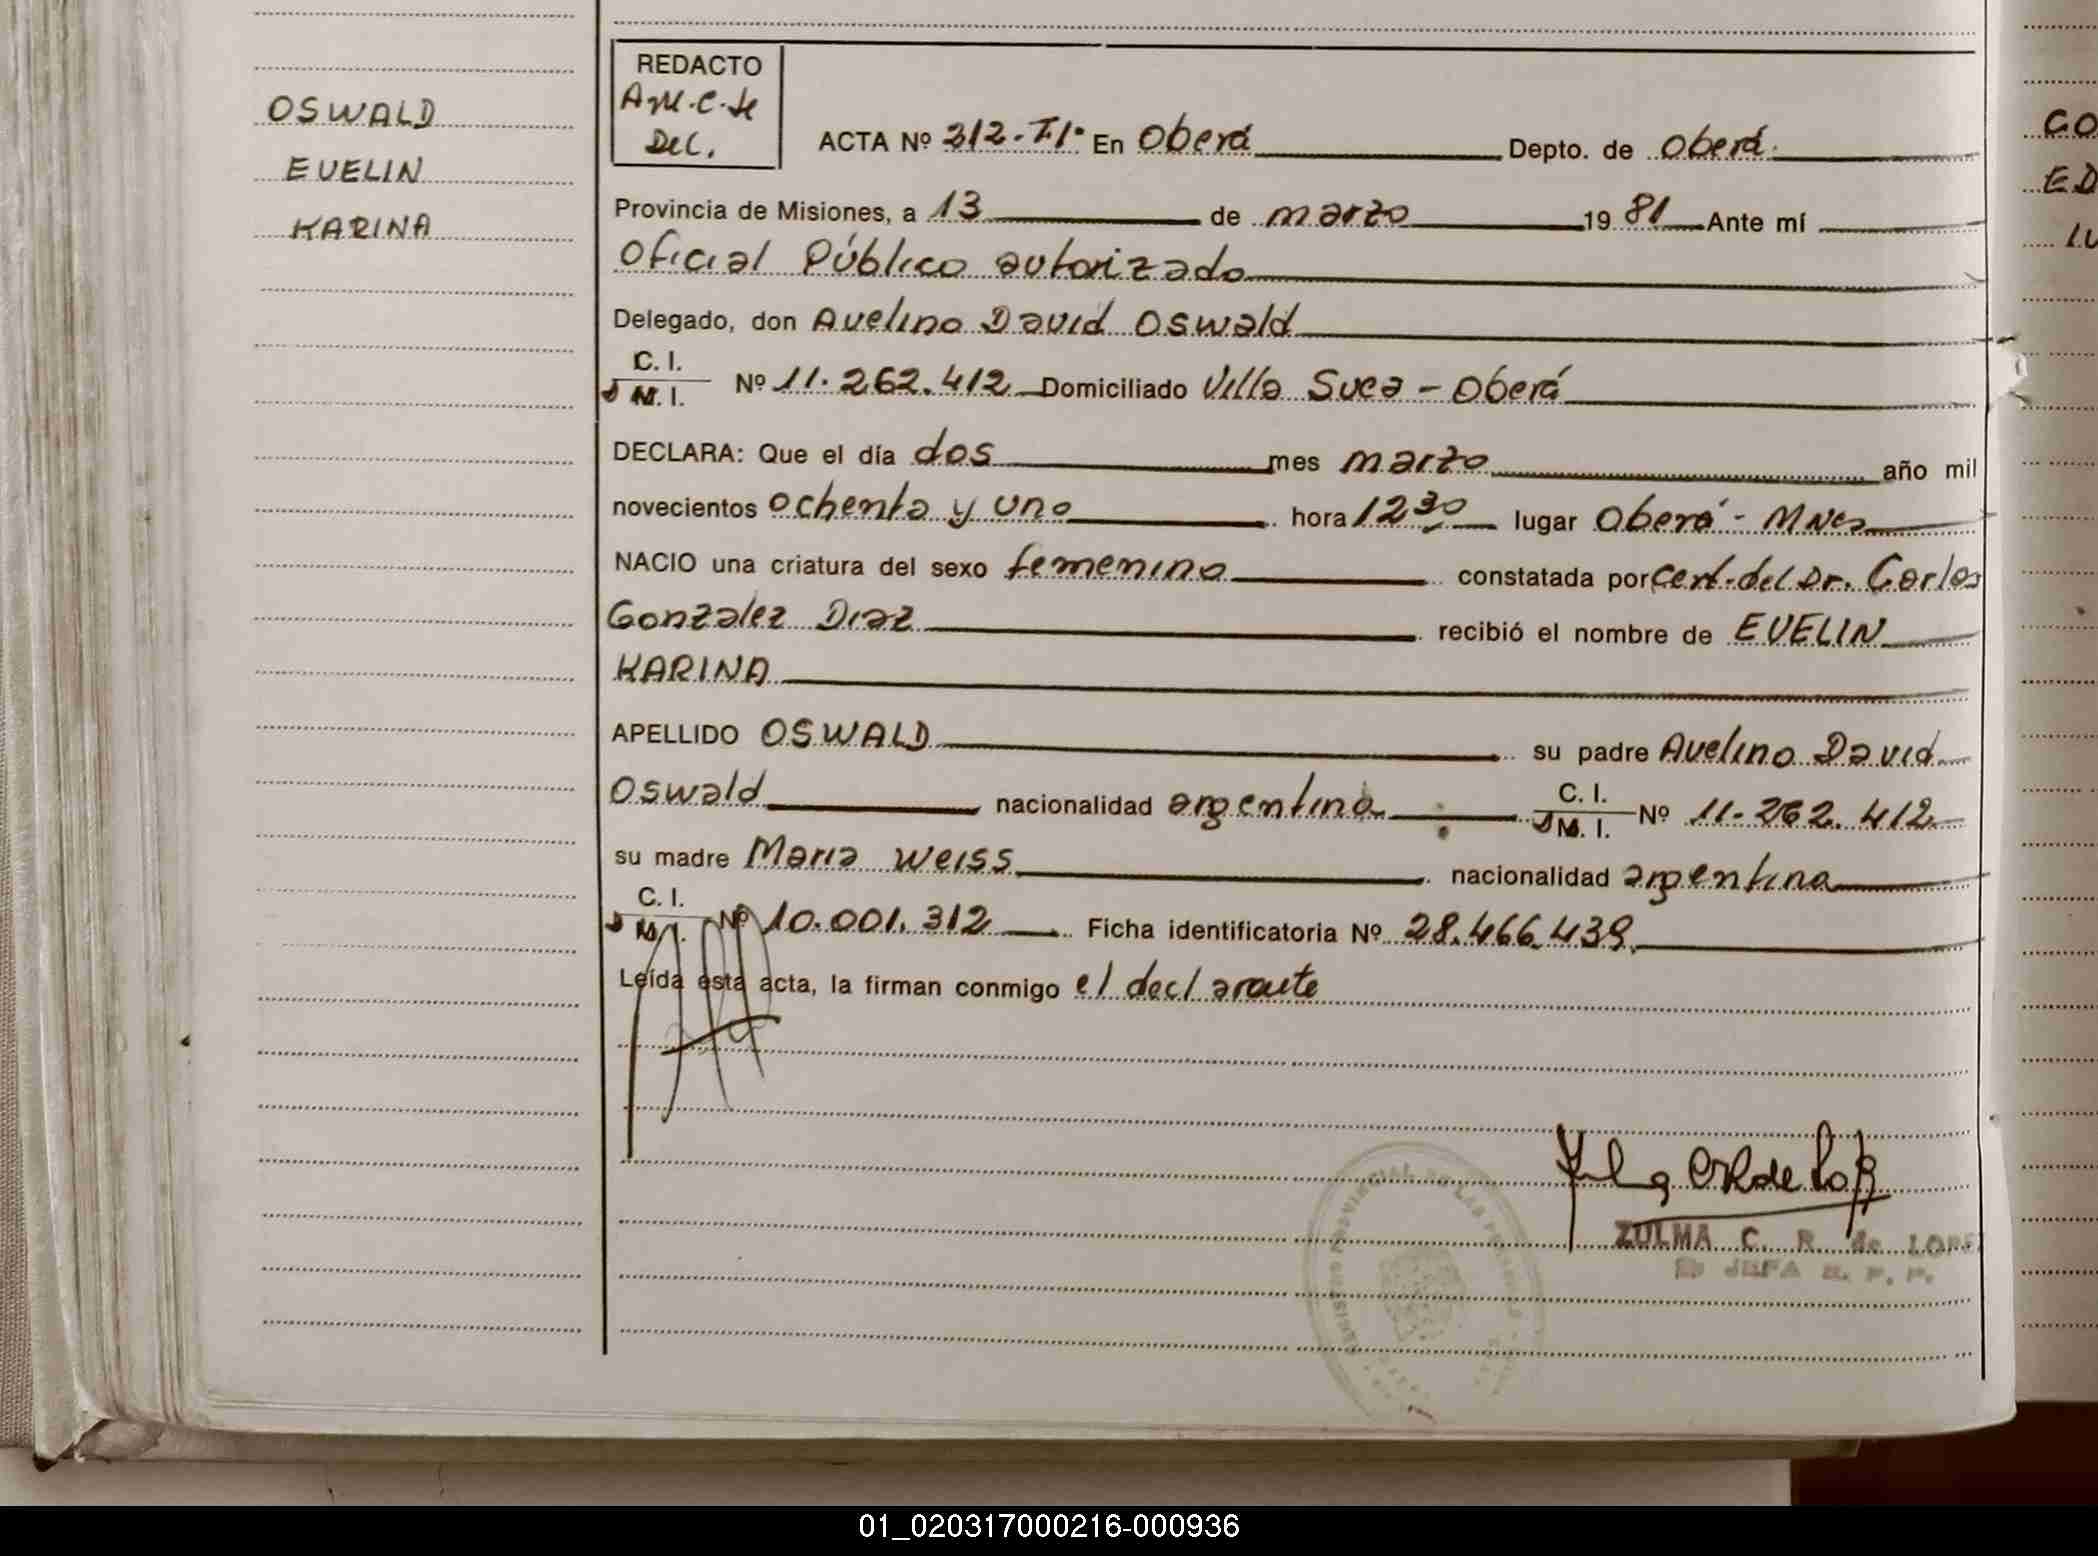 OSWALD
EVELIN
KARINA
REDACTO
DEC.
ACTA Nº 312-Tº1º En Oberá Depto. de Oberá
Provincia de Misiones, a 13 de marzo 19 81 Ante mí
Oficial Público autorizado
Delegado, don Avelino David Oswald
C. I.
M. I. Nº 11.262.412 Domiciliado Villa Suea - Oberá
DECLARA: Que el día dos mes marzo año mil
novecientos ochenta y uno hora 12 30 lugar Oberá - Mnes
NACIO una criatura del sexo femenino constatada por Cert. del Dr. Carlos
Gonzalez Diaz recibió el nombre de EVELIN
KARINA
APELLIDO OSWALD su padre Avelino David
Oswald nacionalidad argentina C. I.
M. I. Nº 11-262.412
su madre Maria Weiss nacionalidad argentina
C. I.
M. I. Nº 10.001.312 Ficha identificatoria Nº 28.466.439
Leída esta acta, la firman conmigo el declarante
ZULMA C. R. de LOPE
JEFA
CO
ED
LU
01_020317000216-000936